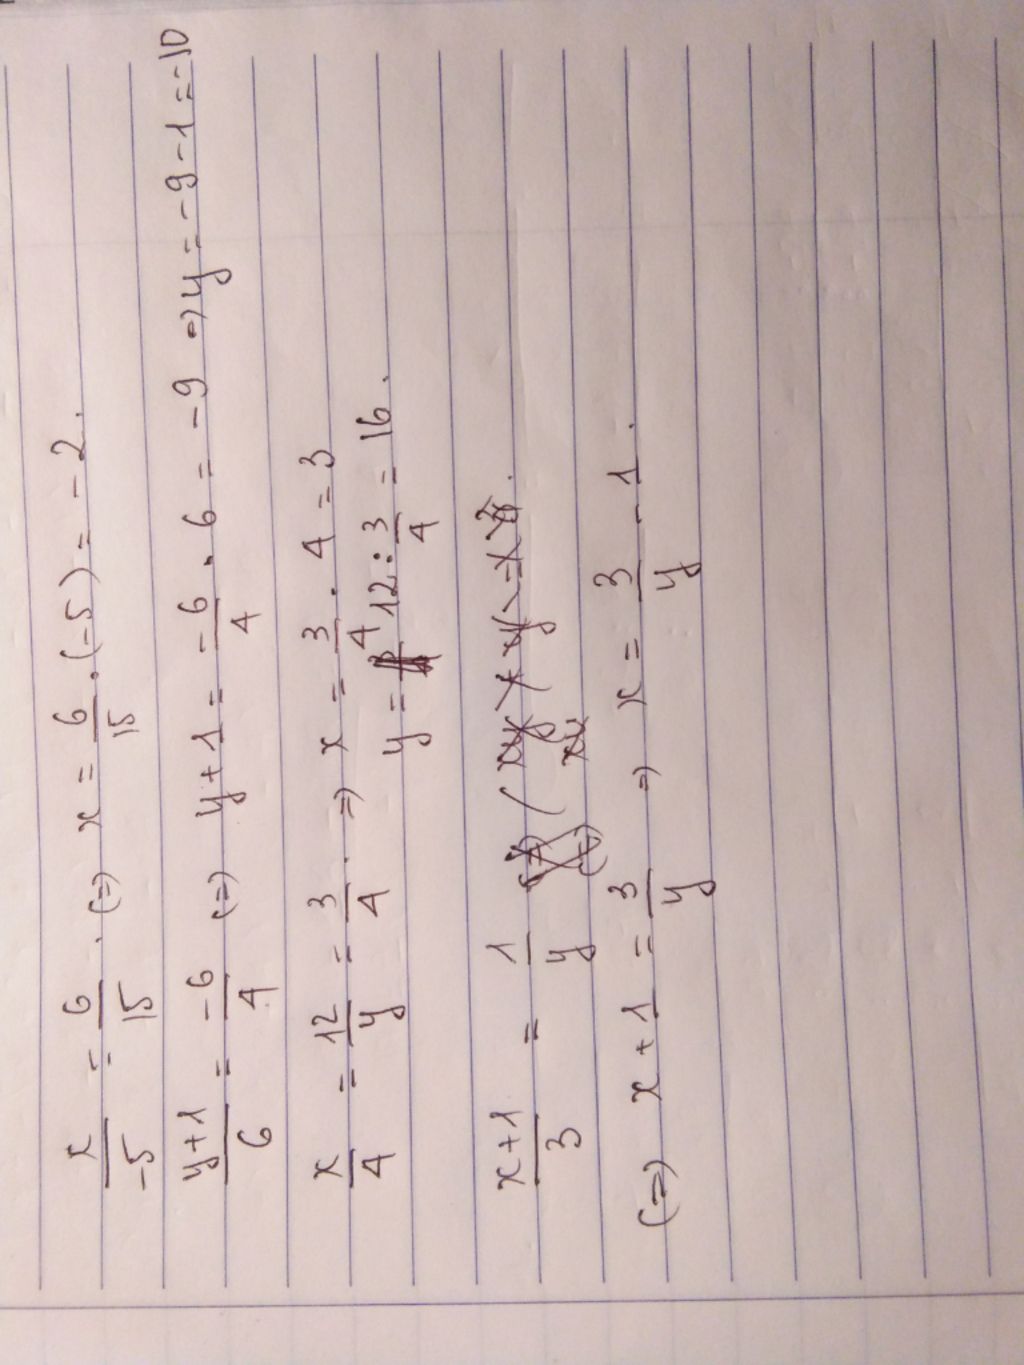 x/-5 = 6/15 . (=) x = 6/15 . (-5) = -2 .
y+1/6 = -6/4 (=) y+1 = -6/4 . 6 = -9 => y = -9 - 1 = -10
x/4 = 12/y = 3/4 . => x = 3/4 . 4 = 3
y = 12 : 3/4 = 16 .
x+1/3 = 1/y
(=) x+1 = 3/y => x = 3/y - 1 .